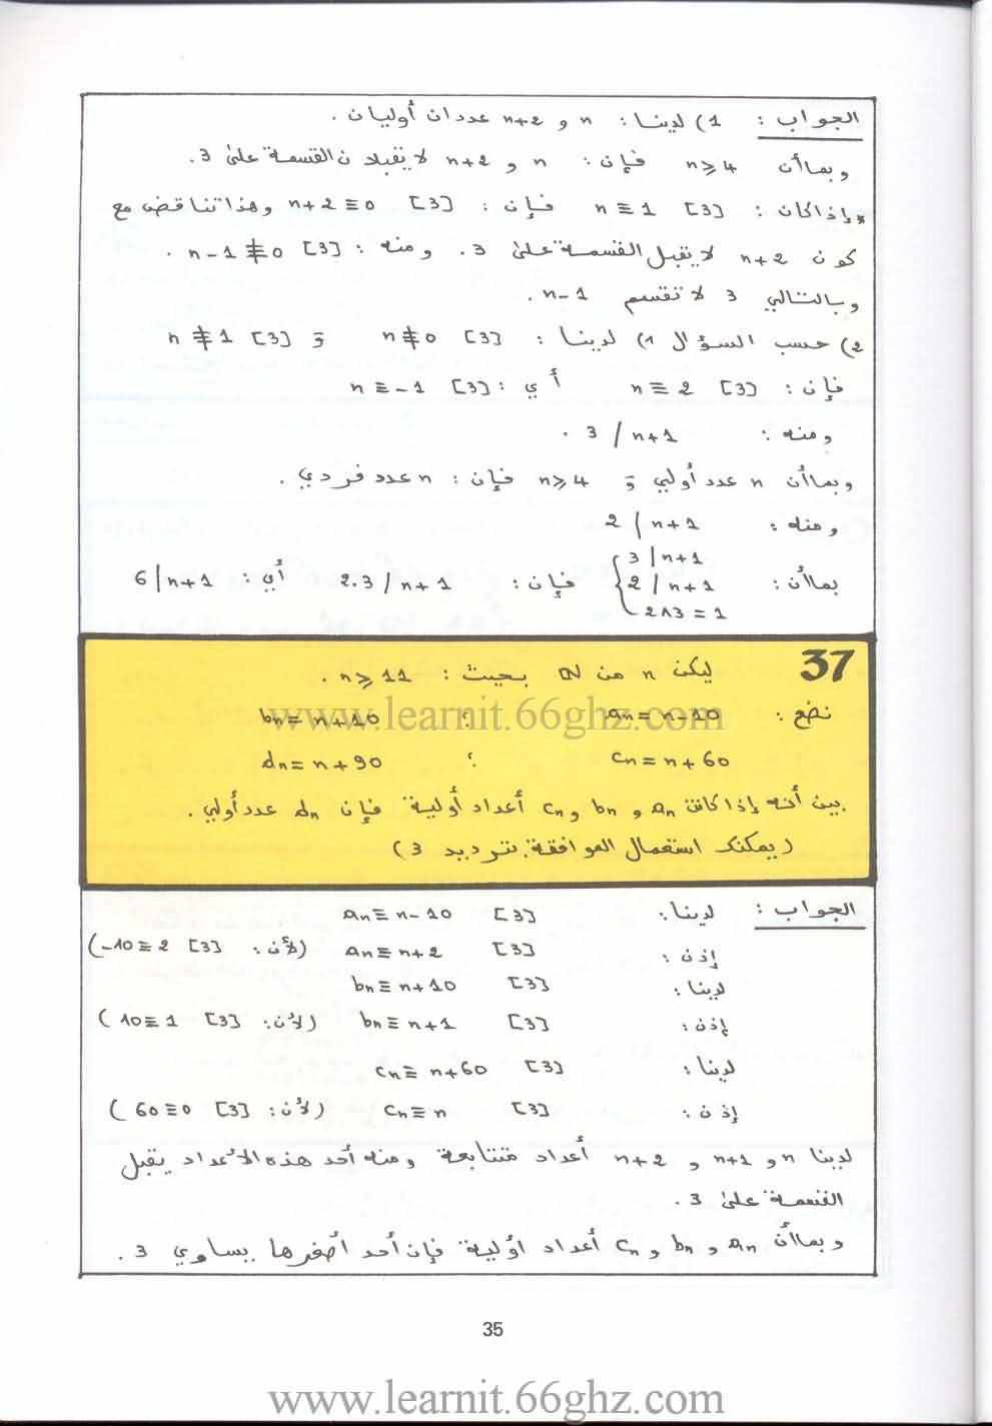 الجواب : 1) لدينا : n و n+2 عددان أوليان .
وبما أن n⩾4 فإن : n و n+2 لا يقبلان القسمة على 3 .
*إذا كان : n ≡ 1 [3] فإن : n+2 ≡ 0 [3] وهذا تناقض مع
كون n+2 لا يقبل القسمة على 3 . ومنه : n-1 ≢ 0 [3] .
وبالتالي 3 لا تقسم n-1 .
2) حسب السؤال 1) لدينا : n ≢ 0 [3] و n ≢ 1 [3]
فإن : n ≡ 2 [3] أي : n ≡ -1 [3]
ومنه : 3 / n+1 .
وبما أن n عدد أولي و n⩾4 فإن : n عدد فردي .
ومنه : 2 / n+1
بما أن : { 3 / n+1 ; 2 / n+1 ; 2∧3 = 1 فإن : 2.3 / n+1 أي : 6 / n+1
37
ليكن n من ℕ بحيث : n⩾11 .
نضع : an = n-10 ; bn = n+10
cn = n+60 ; dn = n+90
بين أنه إذا كانت an و bn و cn أعداد أولية فإن dn عدد أولي .
(يمكنك استعمال الموافقة بترديد 3)
الجواب : لدينا : an ≡ n-10 [3]
إذن : an ≡ n+2 [3] (لأن : -10 ≡ 2 [3])
لدينا : bn ≡ n+10 [3]
إذن : bn ≡ n+1 [3] (لأن : 10 ≡ 1 [3])
لدينا : cn ≡ n+60 [3]
إذن : cn ≡ n [3] (لأن : 60 ≡ 0 [3])
لدينا n و n+1 و n+2 أعداد متتابعة ومنه أحد هذه الأعداد يقبل
القسمة على 3 .
وبما أن an و bn و cn أعداد أولية فإن أحد أصغرها يساوي 3 .
35
www.learnit.66ghz.com
www.learnit.66ghz.com